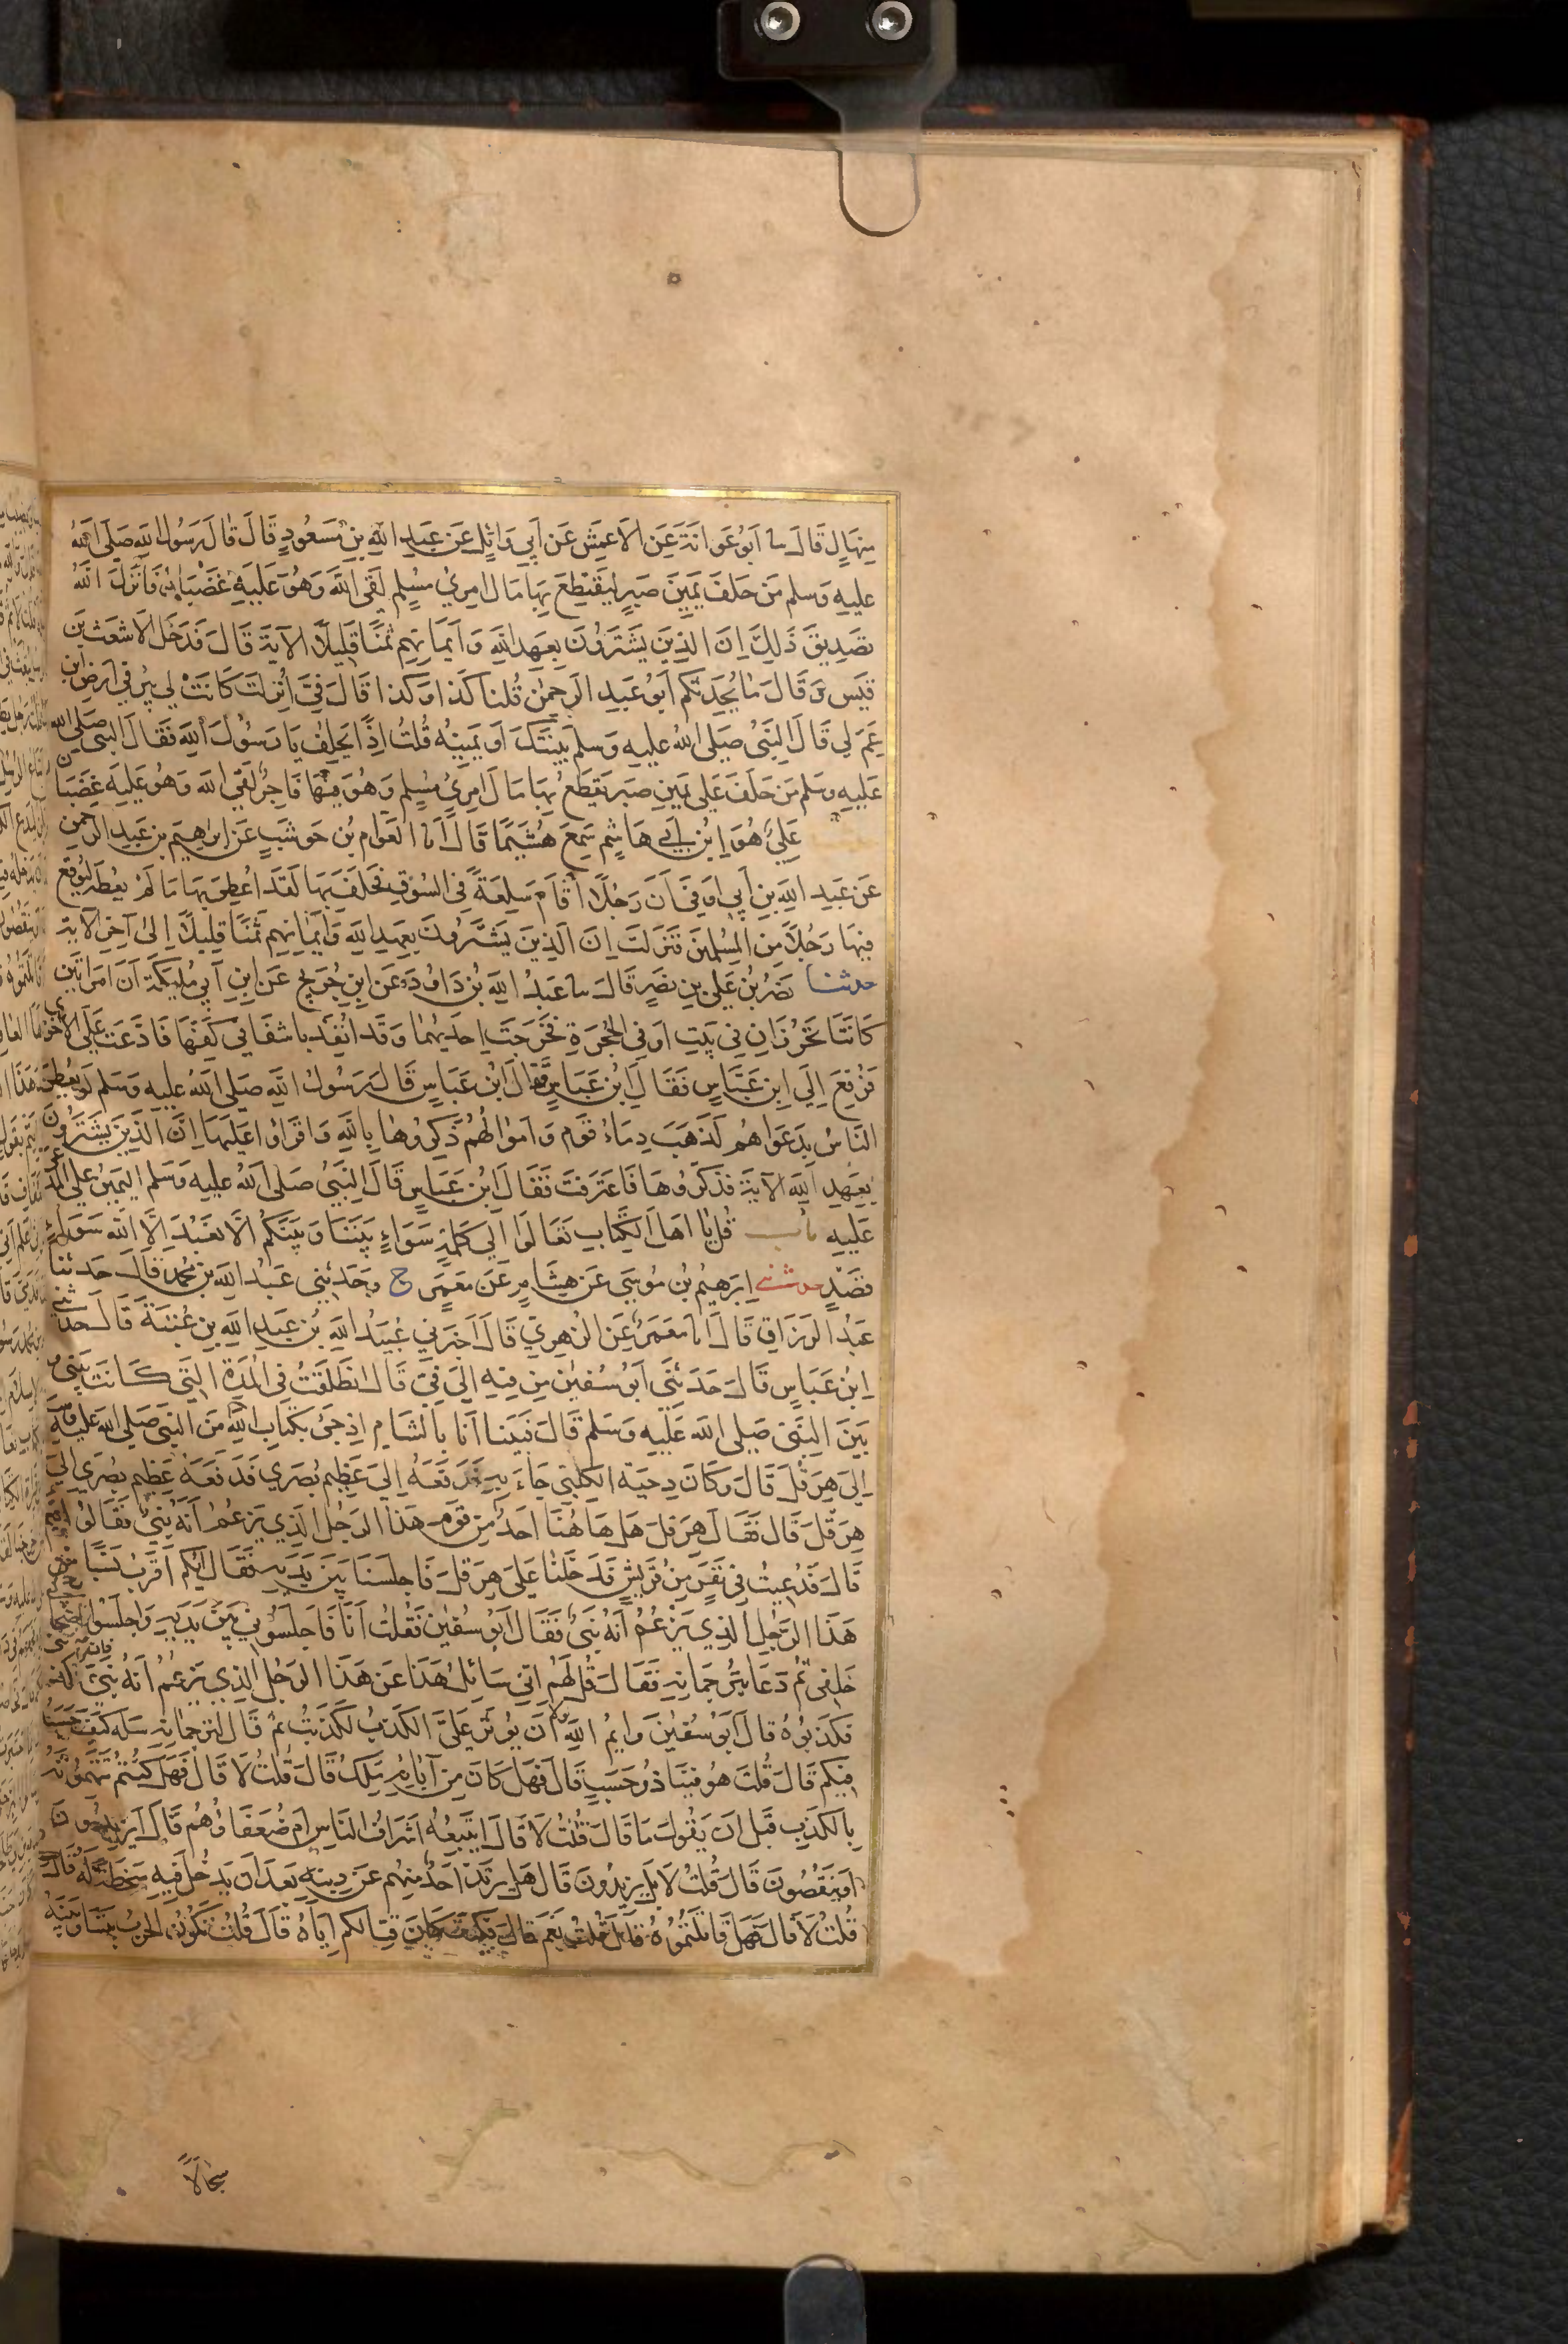 مِنهَالٍ قَالَ سا اَبُو عَوَانَةَ عَنِ الاَعمَشِ عَن اَبِي وَائِلٍ عَن عَبدِ اللهِ بنِ مَسعُودٍ قَالَ قَالَ رَسُولُ اللهِ صَلى اللهُ
عليهِ وَسلم مَن حَلفَ يَمِينَ صَبرٍ لِيَقتَطِعَ بِهَا مَالَ امرِئٍ مُسلِمٍ لَقِيَ اللهَ وَهُوَ عَلَيهِ غَضبَانُ فَاَنزَلَ اللهُ
تصَدِيقَ ذَلِكَ اِنَ الذِينَ يَشتَرُونَ بِعَهدِ اللهِ وَاَيمَانِهِم ثَمَنًا قَلِيلًا الآيَةَ قَالَ فَدَخَلَ الاَشعَثُ بن
قَيسٍ وَقَالَ مَا يُحَدِثُكُم اَبُو عَبدِ الرَحمٰنِ قُلنَا كَذَا وَكَذا قَالَ فِيَّ اُنزِلَت كَانَتْ لِي بِئرٌ فِي اَرضِ ابنِ
عَمٍ لِي قَالَ النَبِيُ صَلى اللهُ عليهِ وَسلم بَيِنَتُكَ اَو يَمِينُهُ قُلتُ اِذًا يَحلِفُ يَا رَسُولَ اللهِ فَقَالَ النبي صَلى الله
عَليهِ وسَلم مَن حَلَفَ عَلى يَمِينِ صَبرٍ يَقتَطِعُ بِهَا مَالَ امرِئٍ مُسلِمٍ وَهُوَ فِيهَا فَاجِرٌ لَقِيَ اللهَ وَهُوَ عَلَيهِ غَضبَان
عَلِيٌ هُوَ اِبنُ اَبِي هَاشِمٍ سَمِعَ هُشَيمًا قَالَ اَنا العَوَامُ بنُ حَوشَبٍ عَن اِبرَاهِيمَ بنِ عَبدِ الرَحمنِ
عَن عَبدِ اللهِ بنِ اَبِي اَوفَى اَنَ رَجُلًا اَقَامَ سِلعَةً فِي السُوقِ فَحَلَفَ بِهَا لَقَد اُعطِيَ بِهَا مَا لَم يُعطَه لِيُوقِعَ
فِيهَا رَجُلًا مِنَ المُسلِمِينَ فَنَزَلَت اِنَ الَذِينَ يَشتَرُونَ بِعَهدِ اللهِ وَاَيمَانِهِم ثَمَنًا قَلِيلًا اِلى آخِرِ الآيَةِ
حدثنا نَصرُ بنُ عَلِيِ بنِ نَصرٍ قَالَ سا عَبدُ اللهِ بنُ دَاوُدَ عَنِ ابنِ جُرَيجٍ عَنِ ابنِ اَبِي مُلَيكَةَ اَنَ امرَاَتَينِ
كَانَتَا تَخرُزَانِ فِي بَيتٍ اَو فِي الحُجرَةِ فَخَرَجَت اِحدَيهُمَا وَقَد اُنفِذَ باشفَا فِي كَفِهَا فَادَعَت عَلَى الاُخرى
فَرُفِعَ اِلَى ابنِ عَبَّاسٍ فَقَالَ ابنُ عَبَاسٍ قَالَ رَسُولُ اللهِ صَلى اللهُ عليهِ وَسلم لَو يُعطَى
النَاسُ بِدَعوَاهُم لَذَهَبَ دِمَاءُ قَومٍ وَاَموَالُهُم ذَكِرُوهَا بِاللهِ وَاقرَاُوا عَلَيهَا اِنَّ الَذِينَ يَشتَرُونَ
بِعَهدِ اللهِ الآيَةَ فَذَكَرُوهَا فَاعتَرَفَت فَقَالَ ابنُ عَبَاسٍ قَالَ النَبِيُ صَلى اللهُ عليهِ وَسَلم اليَمِينُ عَلَى المُدَعَى
عَلَيهِ باب قُل يَا اَهلَ الكِتَابِ تَعَالَوا اِلى كَلِمَةٍ سَوَاءٍ بَينَنَا وَبَينَكُم اَلَّا نَعبُدَ اِلَّا اللهَ سَوَاءٌ
قَصدٍ حدثني اِبرَهِيمُ بنُ مُوسَى عَن هِشَامٍ عَن مَعمَرٍ ح وحَدثَنِي عَبدُ اللهِ بنُ مُحمَدٍ قَالَ حَدثَنَا
عَبدُ الرَزَاقِ قَالَ اَنا مَعمَرٌ عَنِ الزُهرِيِ قَالَ اَخبَرَنِي عُبَيدُ اللهِ بنُ عَبدِ اللهِ بنِ عُتبَةَ قَالَ حَدثني
اِبنُ عَبَاسٍ قَالَ حَدَثَنِي اَبُو سُفيٰنَ مِن فِيهِ اِلَى فِيَّ قَالَ انطَلَقتُ فِي المُدَةِ الَتِي كَانَت بَينِي
بَينَ النَبِيِ صَلى اللهُ عَلَيهِ وَسَلم قَالَ فَبَينَا اَنَا بِالشَامِ اِذ جِيءَ بِكِتَابٍ مِنَ النَبِيِ صَلى اللهُ عليهِ وسلم
اِلَى هِرَقْلَ قَالَ وَكَانَ دِحيَةُ الكَلبِي جَاءَ بِهِ فَدَفَعَهُ اِلَى عَظِيمِ بُصرَى فَدَفَعَهُ عَظِيمُ بُصرَى اِلَى
هِرَقْلَ قَالَ فَقَالَ هِرَقلُ هَل هَا هُنَا اَحَدٌ مِن قَومِ هَذَا الرَجُلِ الذِي يَزعُمُ اَنَهُ نَبِيٌ فَقَالُوا نَعَم
قَالَ فَدُعِيتُ فِي نَفَرٍ مِن قُرَيشٍ فَدَخَلنَا عَلَى هِرَقلَ فَاَجلَسَنَا بَينَ يَدَيهِ فَقَالَ اَيُكُم اَقرَبُ نَسَبًا مِن
هَذَا الرَجُلِ الذِي يَزعُمُ اَنَهُ نَبِيٌ فَقَالَ اَبُو سُفيٰنَ فَقُلتُ اَنَا فَاَجلَسُونِي بَينَ يَدَيهِ وَاَجلَسُوا اَصحَابِي
خَلفِي ثُمَ دَعَا بِتَرجُمَانِهِ فَقَالَ قُل لَهُم اِنِي سَائِلٌ هَذَا عَن هَذَا الرَجُلِ الذِي يَزعُمُ اَنَهُ نَبِيٌ فان كذبني
فَكَذِبُوهُ قَالَ اَبُو سُفيٰنَ وَايمُ اللهِ لولا اَن يُؤثَرَ عَلَيَّ الكَذِبُ لَكَذَبتُ ثُمَ قَالَ لِتَرجُمَانِهِ سَلهُ كَيفَ حَسَبُهُ
فِيكُم قَالَ قُلتُ هُوَ فِينَا ذُو حَسَبٍ قَالَ فَهَل كَانَ مِن آبَائِهِ مَلِكٌ قَالَ قُلتُ لَا قَالَ فَهَل كُنتُم تَتَهِمُونَهُ
بِالكَذِبِ قَبلَ اَن يَقُولَ مَا قَالَ قُلتُ لَا قَالَ اَيَتبَعُهُ اَشرَافُ النَاسِ اَم ضُعَفَاؤُهُم قَالَ اَيَزِيدُونَ
اَو يَنقُصُونَ قَالَ قُلتُ لَا بَل يَزِيدُونَ قَالَ هَل يَرتَدُ اَحَدٌ مِنهُم عَن دِينِهِ بَعدَ اَن يَدخُلَ فِيهِ سَخطَةً لَهُ قَالَ
قُلتُ لَا قَالَ فَهَل قَاتَلتُمُوهُ قَالَ قُلتُ نَعَم قَالَ فَكَيفَ كَانَ قِتَالُكُم اِيَاهُ قَالَ قُلتُ تَكُونُ الحَربُ بَينَنَا وَبَينَهُ
سِجَالًا